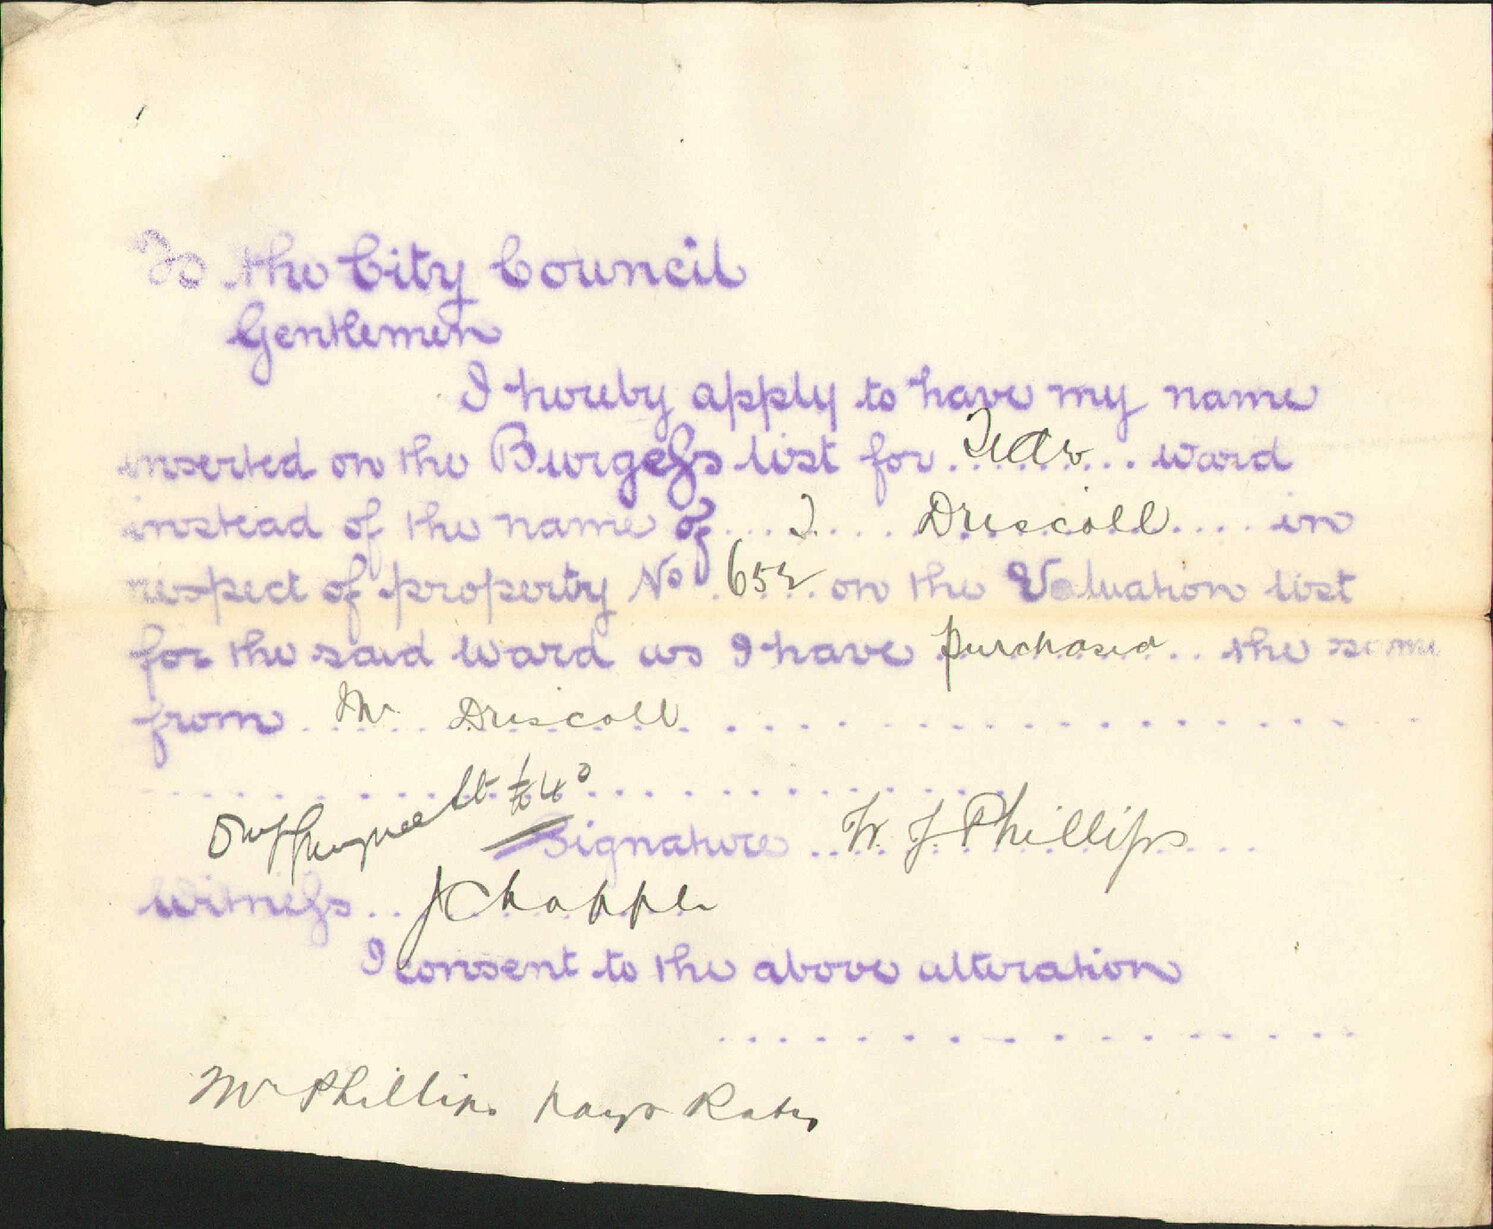 To the City Council
Gentlemen
I hereby apply to have my name
inserted on the Burgess list for ......... ward
instead of the name of ... J .... Driscoll .... in
respect of property No 652 on the Valuation list
for the said ward as I have purchased .. the same
from Mr Driscoll
Signature W. J. Phillips
Witness J Chapple
I consent to the above alteration
Mr Phillips pays Rates